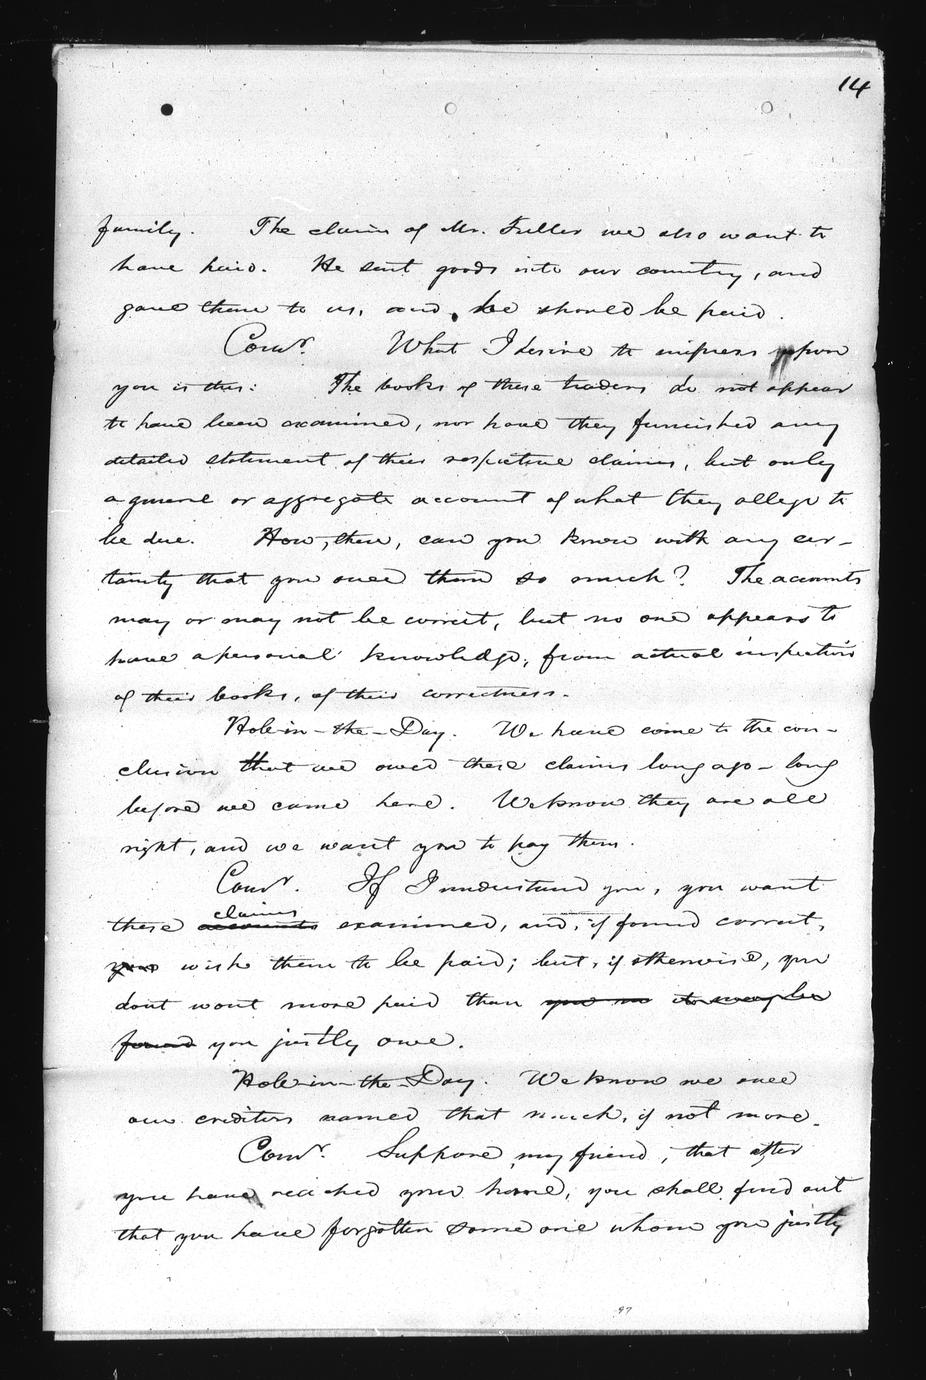 14
family. The claim of Mr. Fuller we also want to
have paid. He sent goods into our country, and
gave them to us, and he should be paid.
Comr. What I desire to impress upon
you is this: The books of these traders do not appear
to have been examined, nor have they furnished any
detailed statement of their respective claims, but only
a general or aggregate account of what they allege to
be due. How, then, can you know with any cer-
tainty that you owed them so much? The accounts
may or may not be correct, but no one appears to
have a personal knowledge, from actual inspection
of their books, of their correctness.
Hole-in-the-Day. We have come to the con-
clusion that we owed these claims long ago - long
before we came here. We know they are all
right, and we want you to pay them.
Comr. If I understand you, you want
claims
these accounts examined, and, if found correct,
you wish them to be paid; but, if otherwise, you
dont want more paid than you no its may be
found you justly owe.
Hole-in-the-Day. We know we owed
our creditors named that much, if not more.
Comr. Suppose, my friend, that after
you have reached your home, you shall find out
that you have forgotten some one whom you justly
97